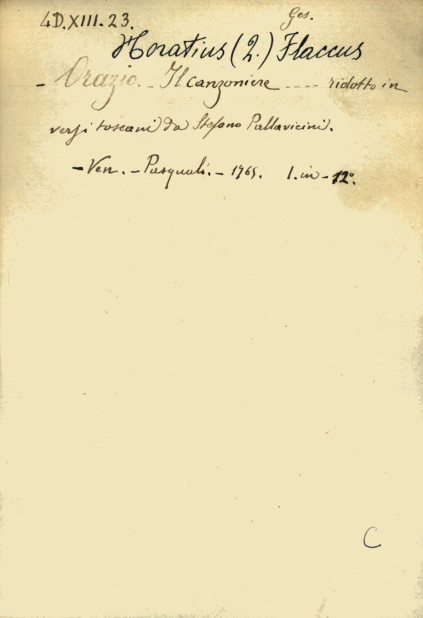 4D.XIII.23.
Ges.
Horatius (Q.) Flaccus
- Orazio. - Il Canzoniere .... ridotto in
versi toscani da Stefano Pallavicini.
- Ven. - Pasquali. - 1765. 1. in - 12°.
C